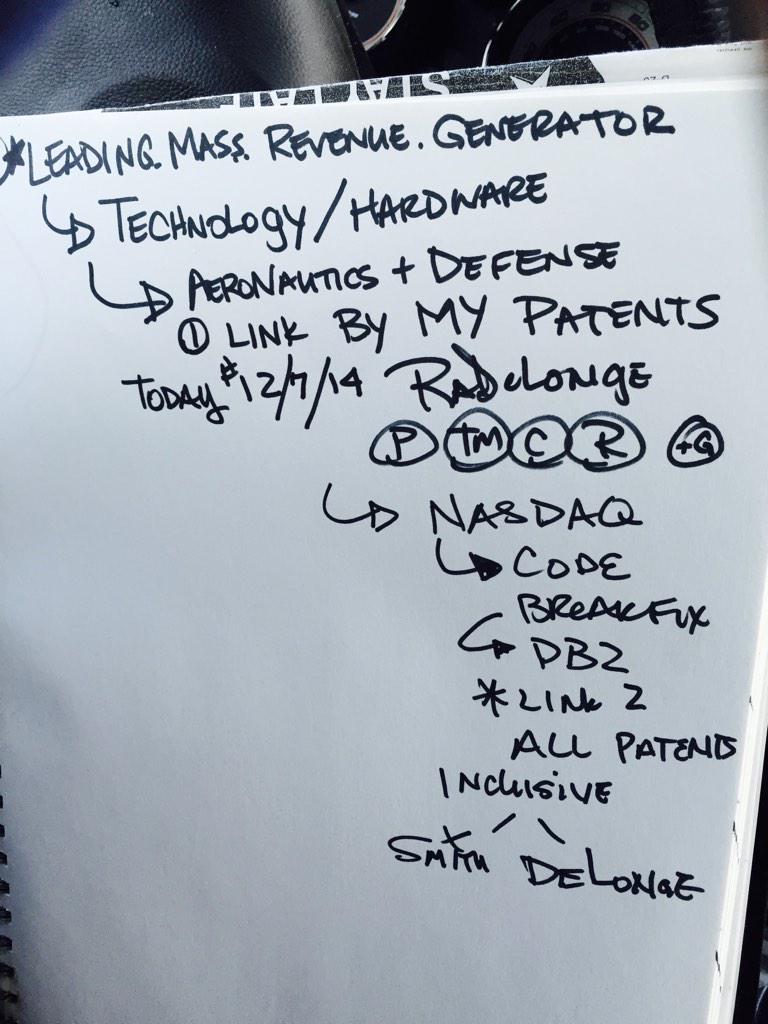 *LEADING. MASS. REVENUE. GENERATOR
TECHNOLOGY/HARDWARE
AERONAUTICS + DEFENSE
① LINK BY MY PATENTS
TODAY # 12/7/14 RADeLONGE
P TM C R +G
NASDAQ
CODE
BREAKFIX
DB2
* LINK 2
ALL PATENTS
INCLUSIVE
SMITH DELONGE